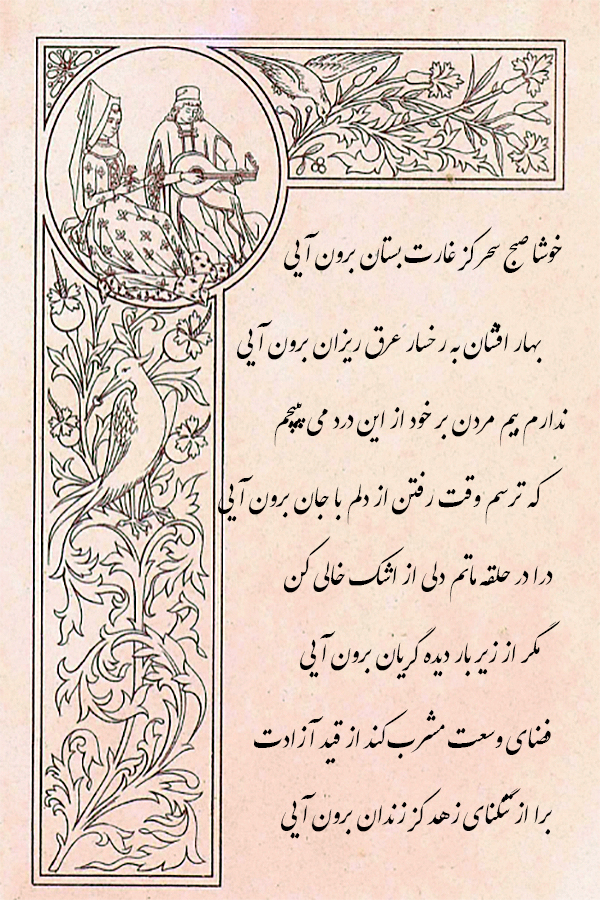 خوشا صبح سحر کز غارت بستان برون آیی
بهار افشان به رخسار عرق ریزان برون آیی
ندارم بیم مردن بر خود از این درد می پیچم
که ترسم وقت رفتن از دلم با جان برون آیی
درا در حلقه ماتم دلی از اشک خالی کن
مگر از زیر بار دیده گریان برون آیی
فضای وسعت مشرب کند از قید آزادت
برا از تنگنای زهد کز زندان برون آیی